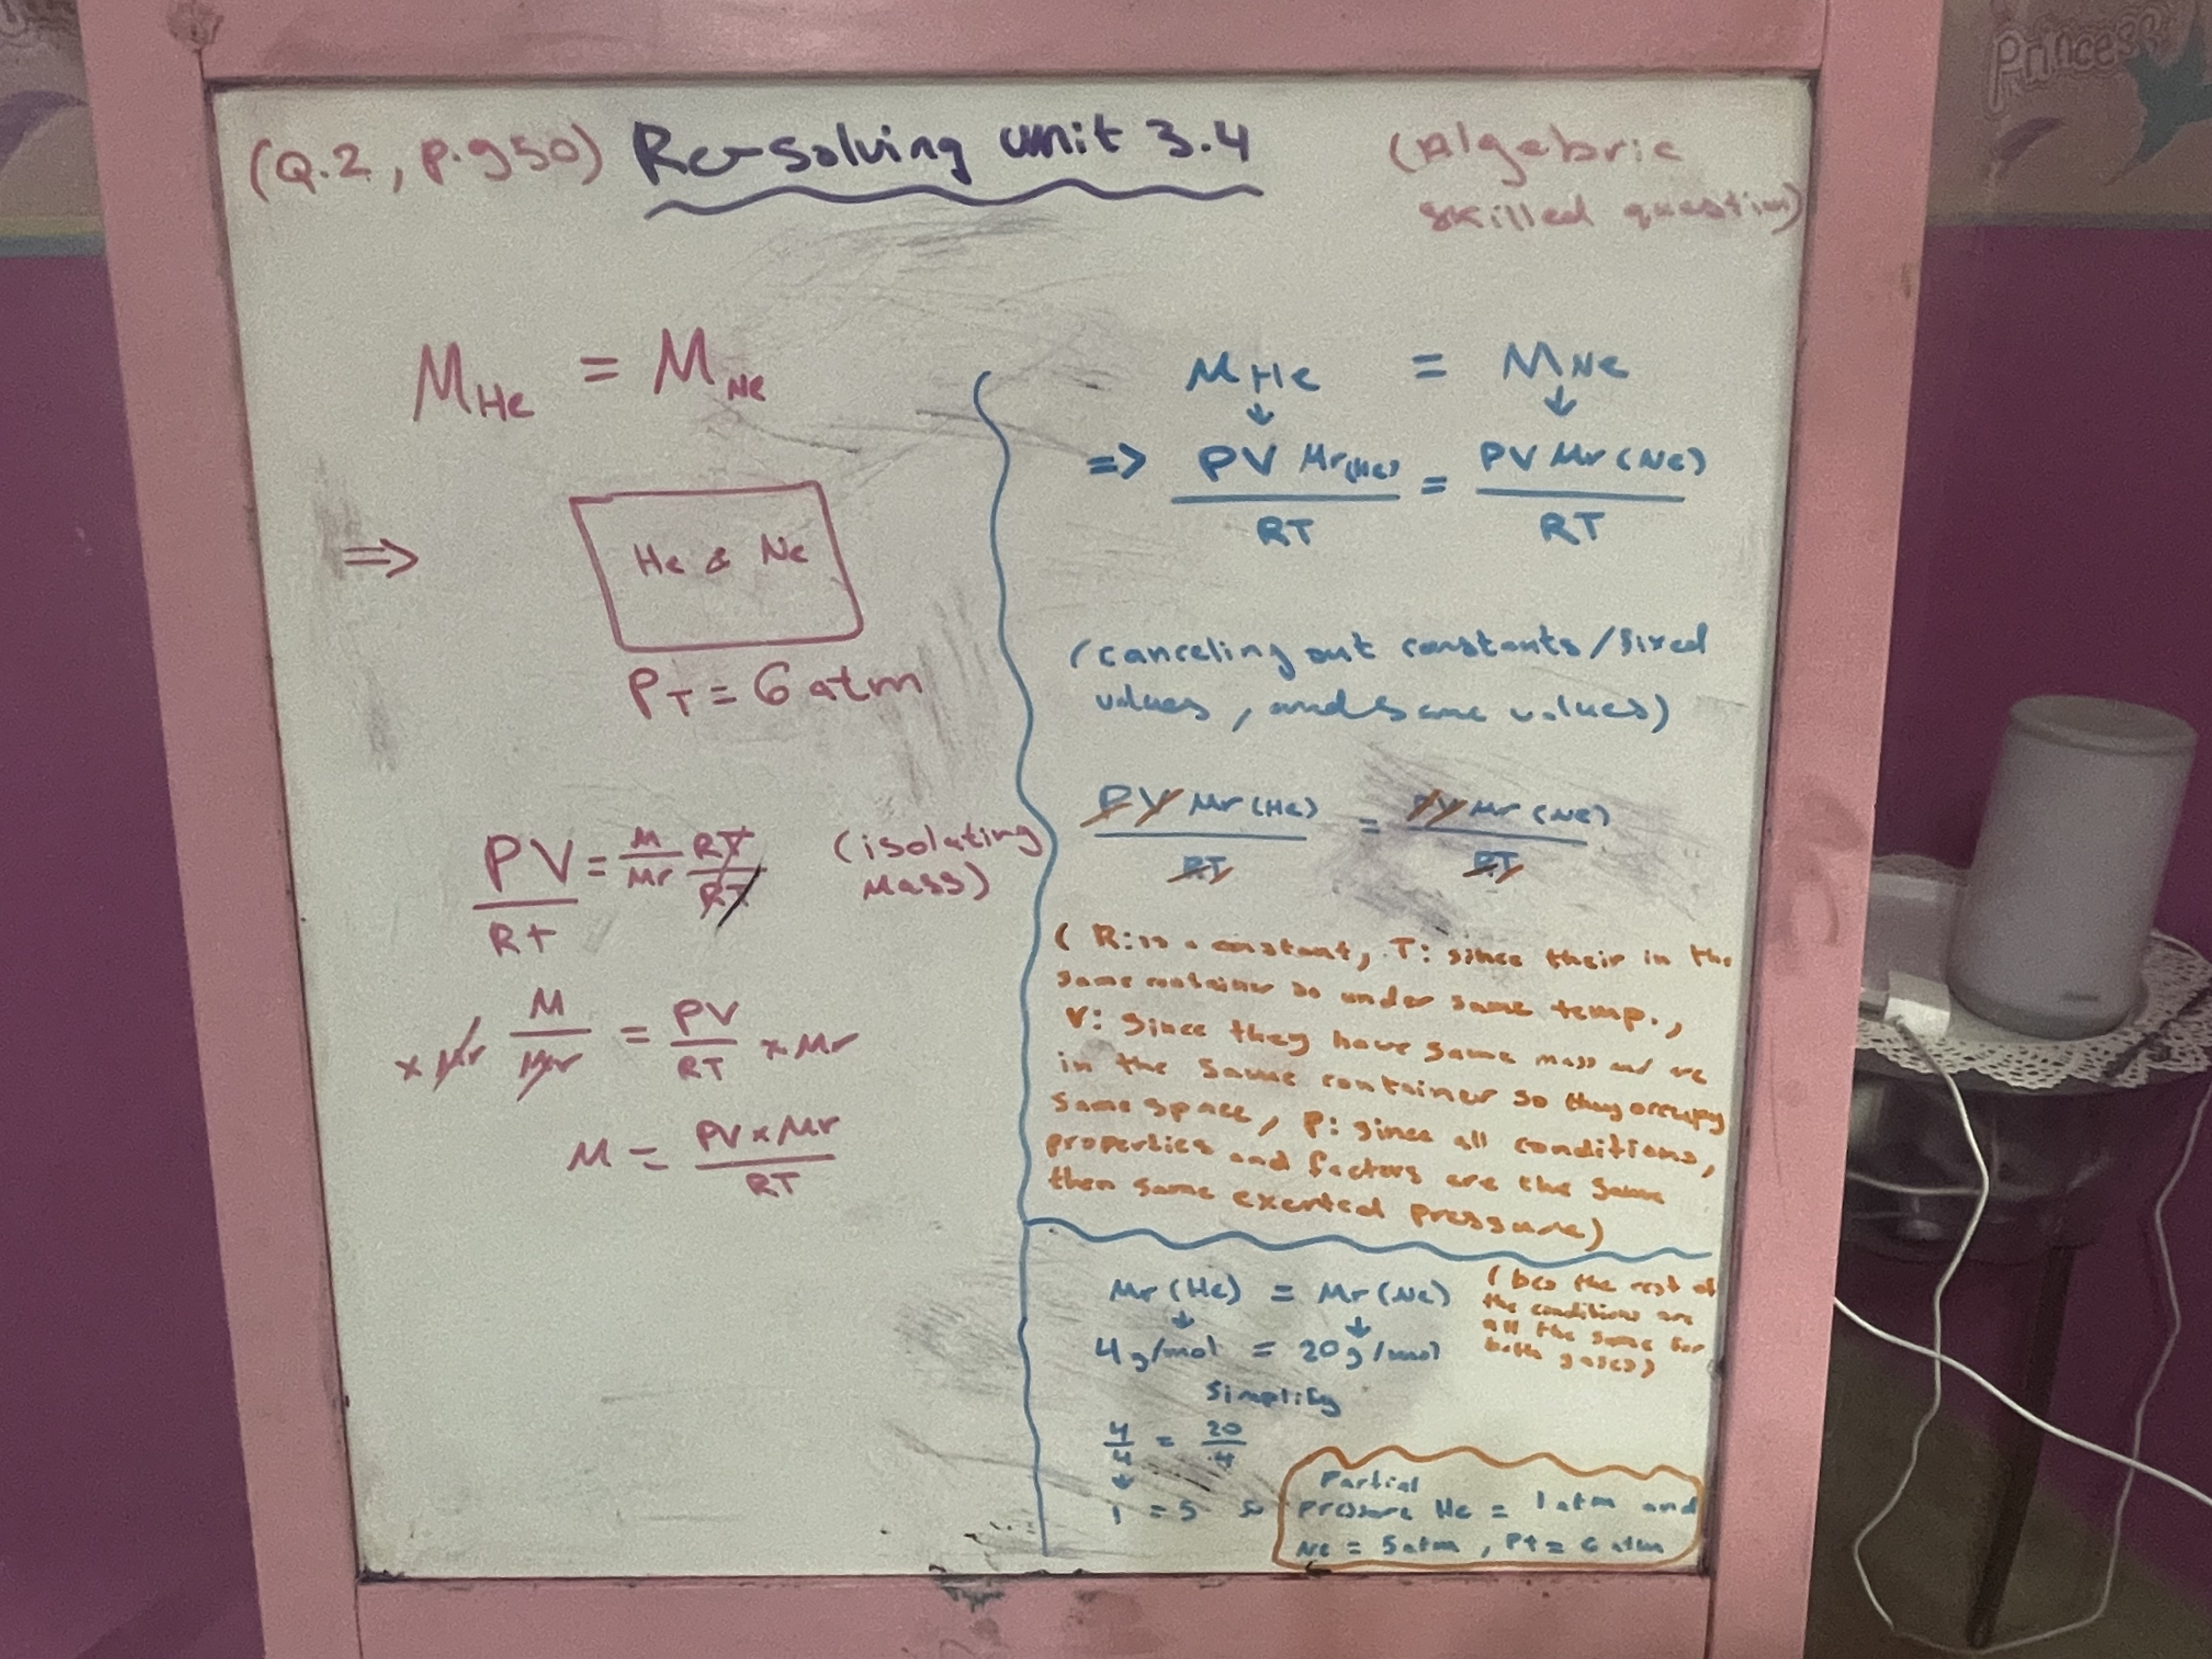 (Q.2, p.g50) Re-solving unit 3.4 (Algebric
skilled question)
M He = M Ne
=> He & Ne
PT = 6 atm
PV/Rt = M/Mr RT/RT (isolating
Mass)
x Mr M/Mr = PV/RT x Mr
M = PV x Mr/RT
M He = M Ne
↓ ↓
=> PV Mr(He)/RT = PV Mr (Ne)/RT
(canceling out constants/fixed
values, and same values)
PV Mr (He)/RT = PV Mr (Ne)/RT
( R: is a constant, T: since their in the
same container so under same temp.,
V: since they have same mass and are
in the same container so they occupy
same space, P: since all conditions,
properties and factors are the same
then same exerted pressure)
Mr (He) = Mr (Ne)
↓ ↓
4 g/mol = 20 g/mol
(bcs the rest of
the conditions are
all the same for
both gases)
Simplify
4/4 = 20/4
↓
1 = 5 so
Partial
pressure He = 1 atm and
Ne = 5 atm, Pt = 6 atm
Princess